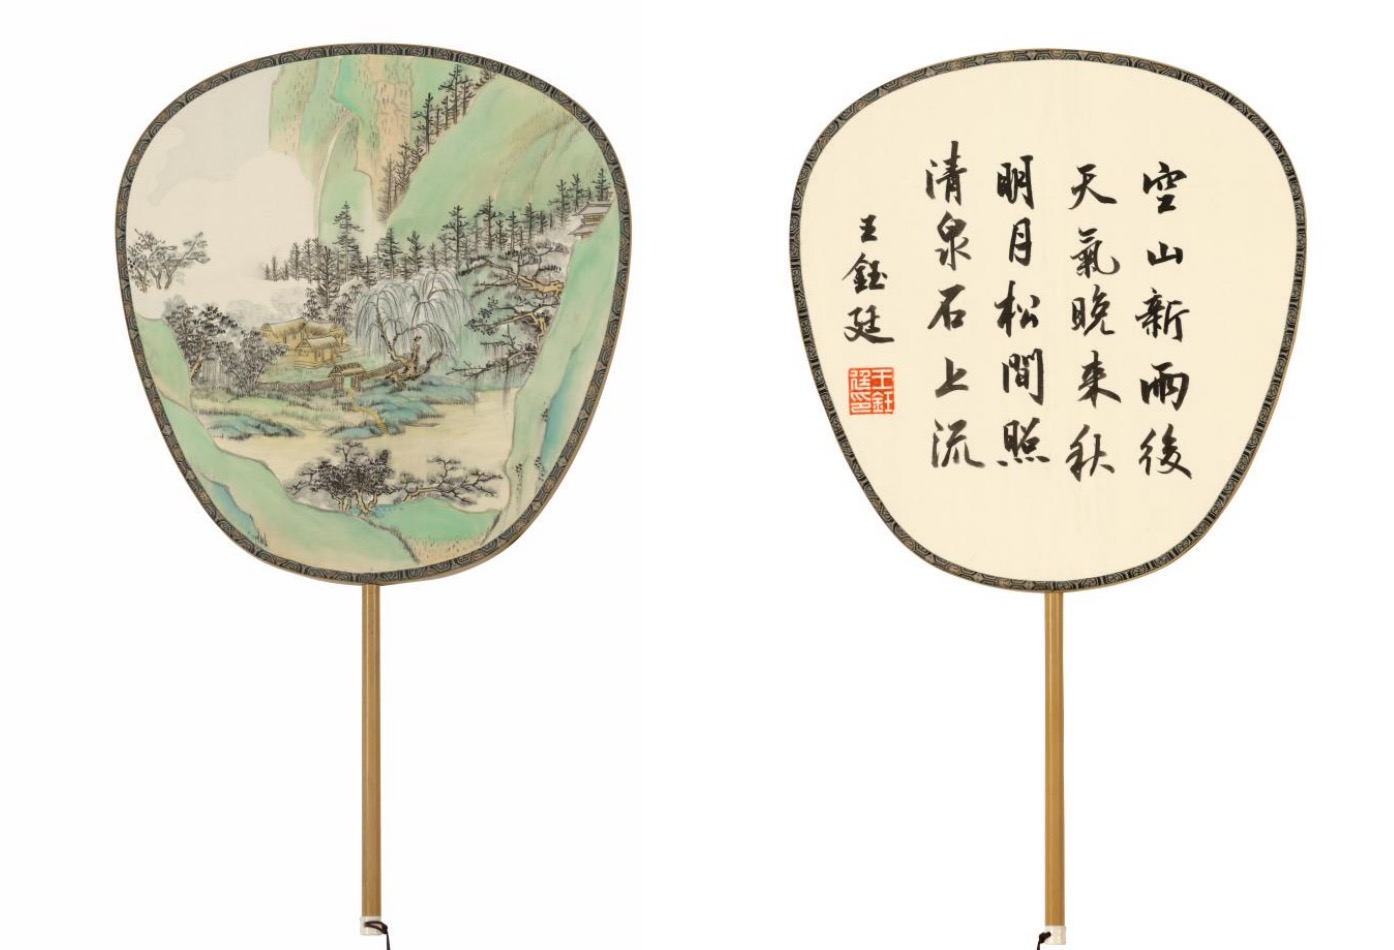 空山新雨後
天氣晚来秋
明月松間照
清泉石上流
王鈺廷
王鈺廷印